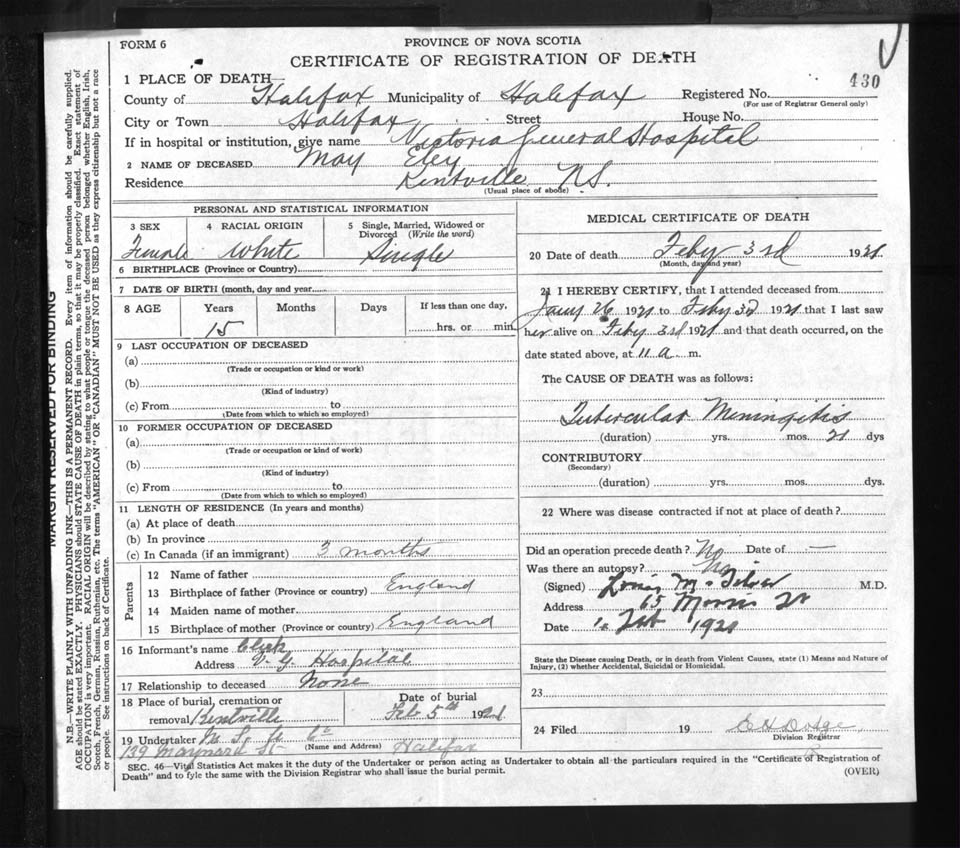 FORM 6
PROVINCE OF NOVA SCOTIA
CERTIFICATE OF REGISTRATION OF DEATH
430
1 PLACE OF DEATH—
County of Halifax Municipality of Halifax Registered No.
(For use of Registrar General only)
City or Town Halifax Street House No.
If in hospital or institution, give name Victoria General Hospital
2 NAME OF DECEASED May Eley
Residence Kentville N.S.
(Usual place of abode)
PERSONAL AND STATISTICAL INFORMATION
3 SEX 4 RACIAL ORIGIN 5 Single, Married, Widowed or Divorced (Write the word)
Female White Single
6 BIRTHPLACE (Province or Country)
7 DATE OF BIRTH (month, day and year)
8 AGE Years Months Days If less than one day,
15 hrs. or min.
9 LAST OCCUPATION OF DECEASED
(a)
(Trade or occupation or kind or work)
(b)
(Kind of industry)
(c) From to
(Date from which to which so employed)
10 FORMER OCCUPATION OF DECEASED
(a)
(Trade or occupation or kind of work)
(b)
(Kind of industry)
(c) From to
(Date from which to which so employed)
11 LENGTH OF RESIDENCE (In years and months)
(a) At place of death
(b) In province
(c) In Canada (if an immigrant) 3 months
Parents
12 Name of father
13 Birthplace of father (Province or country) England
14 Maiden name of mother
15 Birthplace of mother (Province or country) England
16 Informant's name Clerk
Address V. G. Hospital
17 Relationship to deceased None
18 Place of burial, cremation or removal Kentville
Date of burial
Feb 5th 1921
19 Undertaker
(Name and Address)
139 Maynard St Halifax
MEDICAL CERTIFICATE OF DEATH
20 Date of death Feby 3rd 1921
(Month, day and year)
21 I HEREBY CERTIFY, that I attended deceased from
Jany 26 1921 to Feby 3d 1921 that I last saw
her alive on Feby 3rd 1921 and that death occurred, on the
date stated above, at 11 a m.
The CAUSE OF DEATH was as follows:
Tubercular Meningitis
(duration) yrs. mos. 21 dys
CONTRIBUTORY
(Secondary)
(duration) yrs. mos. dys.
22 Where was disease contracted if not at place of death?
Did an operation precede death? No Date of —
Was there an autopsy? No
(Signed) Louis M. Silver M.D.
Address 65 Morris St
Date Feb 1921
State the Disease causing Death, or in death from Violent Causes, state (1) Means and Nature of
Injury, (2) whether Accidental, Suicidal or Homicidal.
23
24 Filed 19
Division Registrar
SEC. 46—Vital Statistics Act makes it the duty of the Undertaker or person acting as Undertaker to obtain all the particulars required in the "Certificate of Registration of
Death" and to fyle the same with the Division Registrar who shall issue the burial permit.
(OVER)
MARGIN RESERVED FOR BINDING
N.B.—WRITE PLAINLY WITH UNFADING INK—THIS IS A PERMANENT RECORD. Every item of information should be carefully supplied.
AGE should be stated EXACTLY. PHYSICIANS should STATE CAUSE OF DEATH in plain terms, so that it may be properly classified. Exact statement of
OCCUPATION is very important. RACIAL ORIGIN will be described by stating to what people or tongue the deceased person belonged whether English, Irish,
Scotch, French, German, Russian, Ruthenian, etc. The terms "AMERICAN" OR "CANADIAN" MUST NOT BE USED as they express citizenship but not a race
or people. See instructions on back of Certificate.